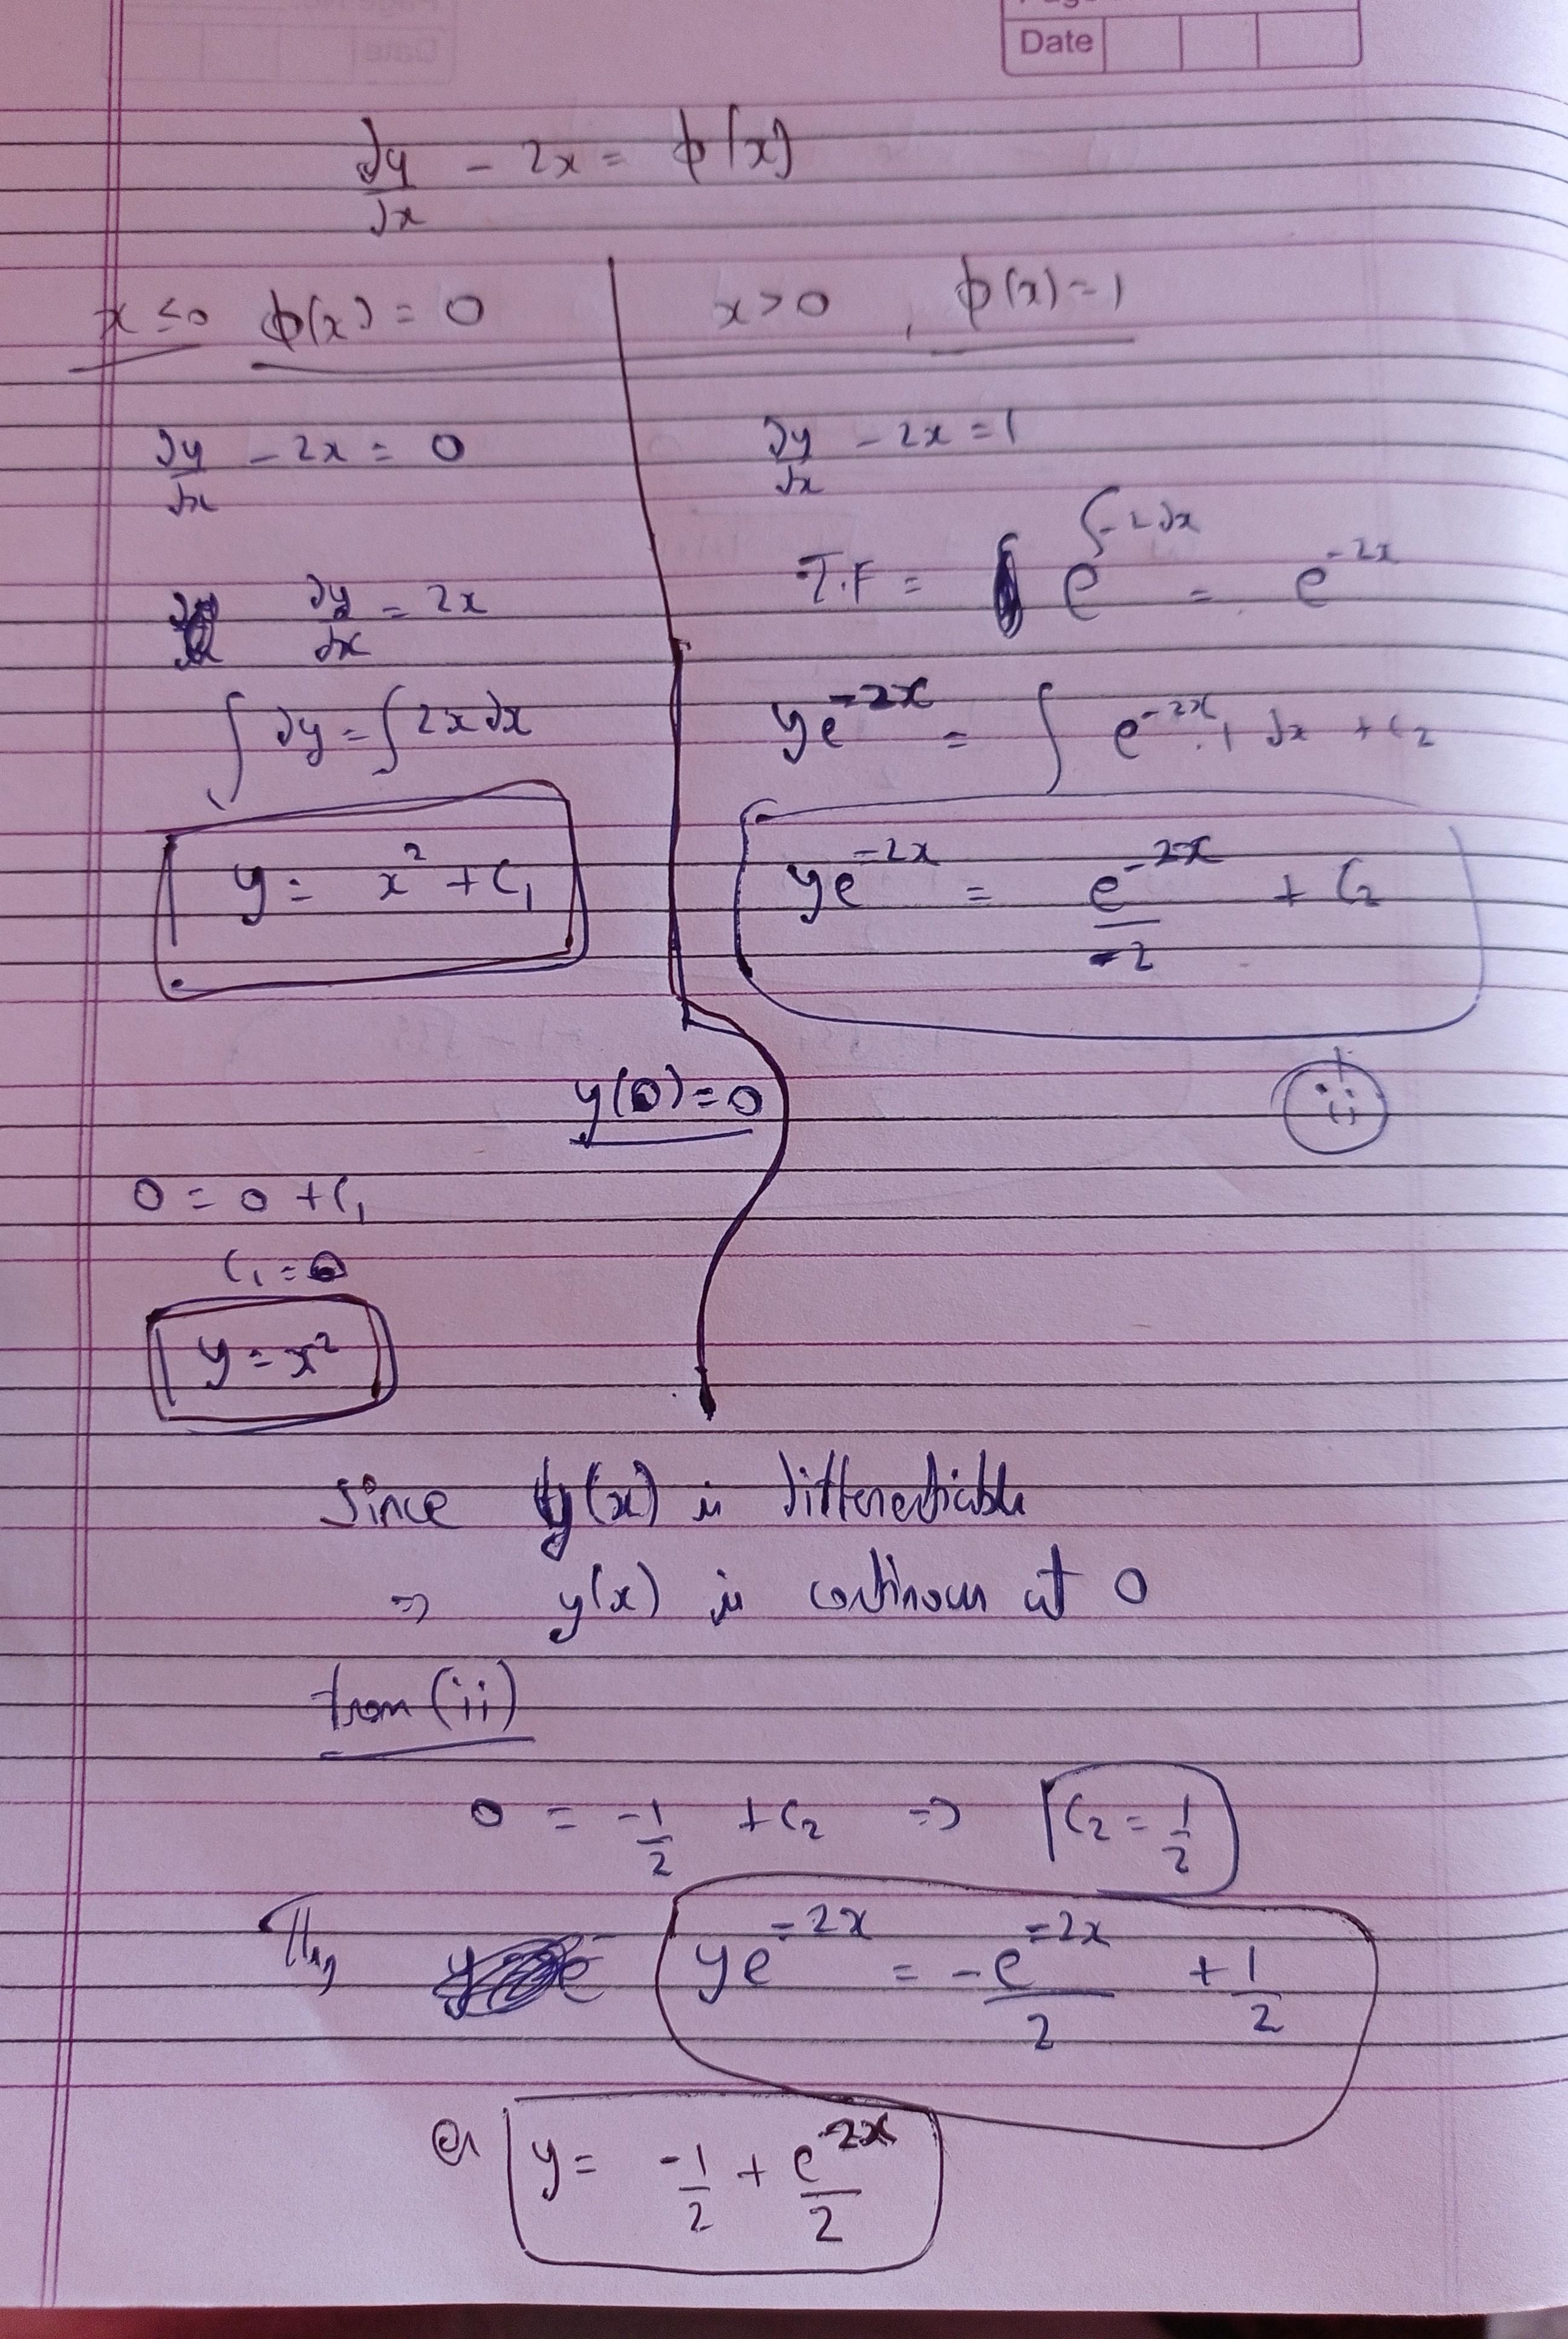 Date
dy/dx - 2x = ϕ(x)
x ≤ 0 ϕ(x) = 0
x > 0 , ϕ(x) = 1
dy/dx - 2x = 0
dy/dx = 2x
∫ dy = ∫ 2x dx
y = x² + C₁
dy/dx - 2x = 1
I.F = e^∫-2dx = e^-2x
ye^-2x = ∫ e^-2x . 1 dx + C₂
ye^-2x = e^-2x/-2 + C₂
y(0) = 0
0 = 0 + C₁
C₁ = 0
y = x²
Since y(x) is differentiable
⇒ y(x) is continous at 0
from (ii)
0 = -1/2 + C₂ ⇒ C₂ = 1/2
Thus ye^-2x = -e^-2x/2 + 1/2
or y = -1/2 + e^2x/2